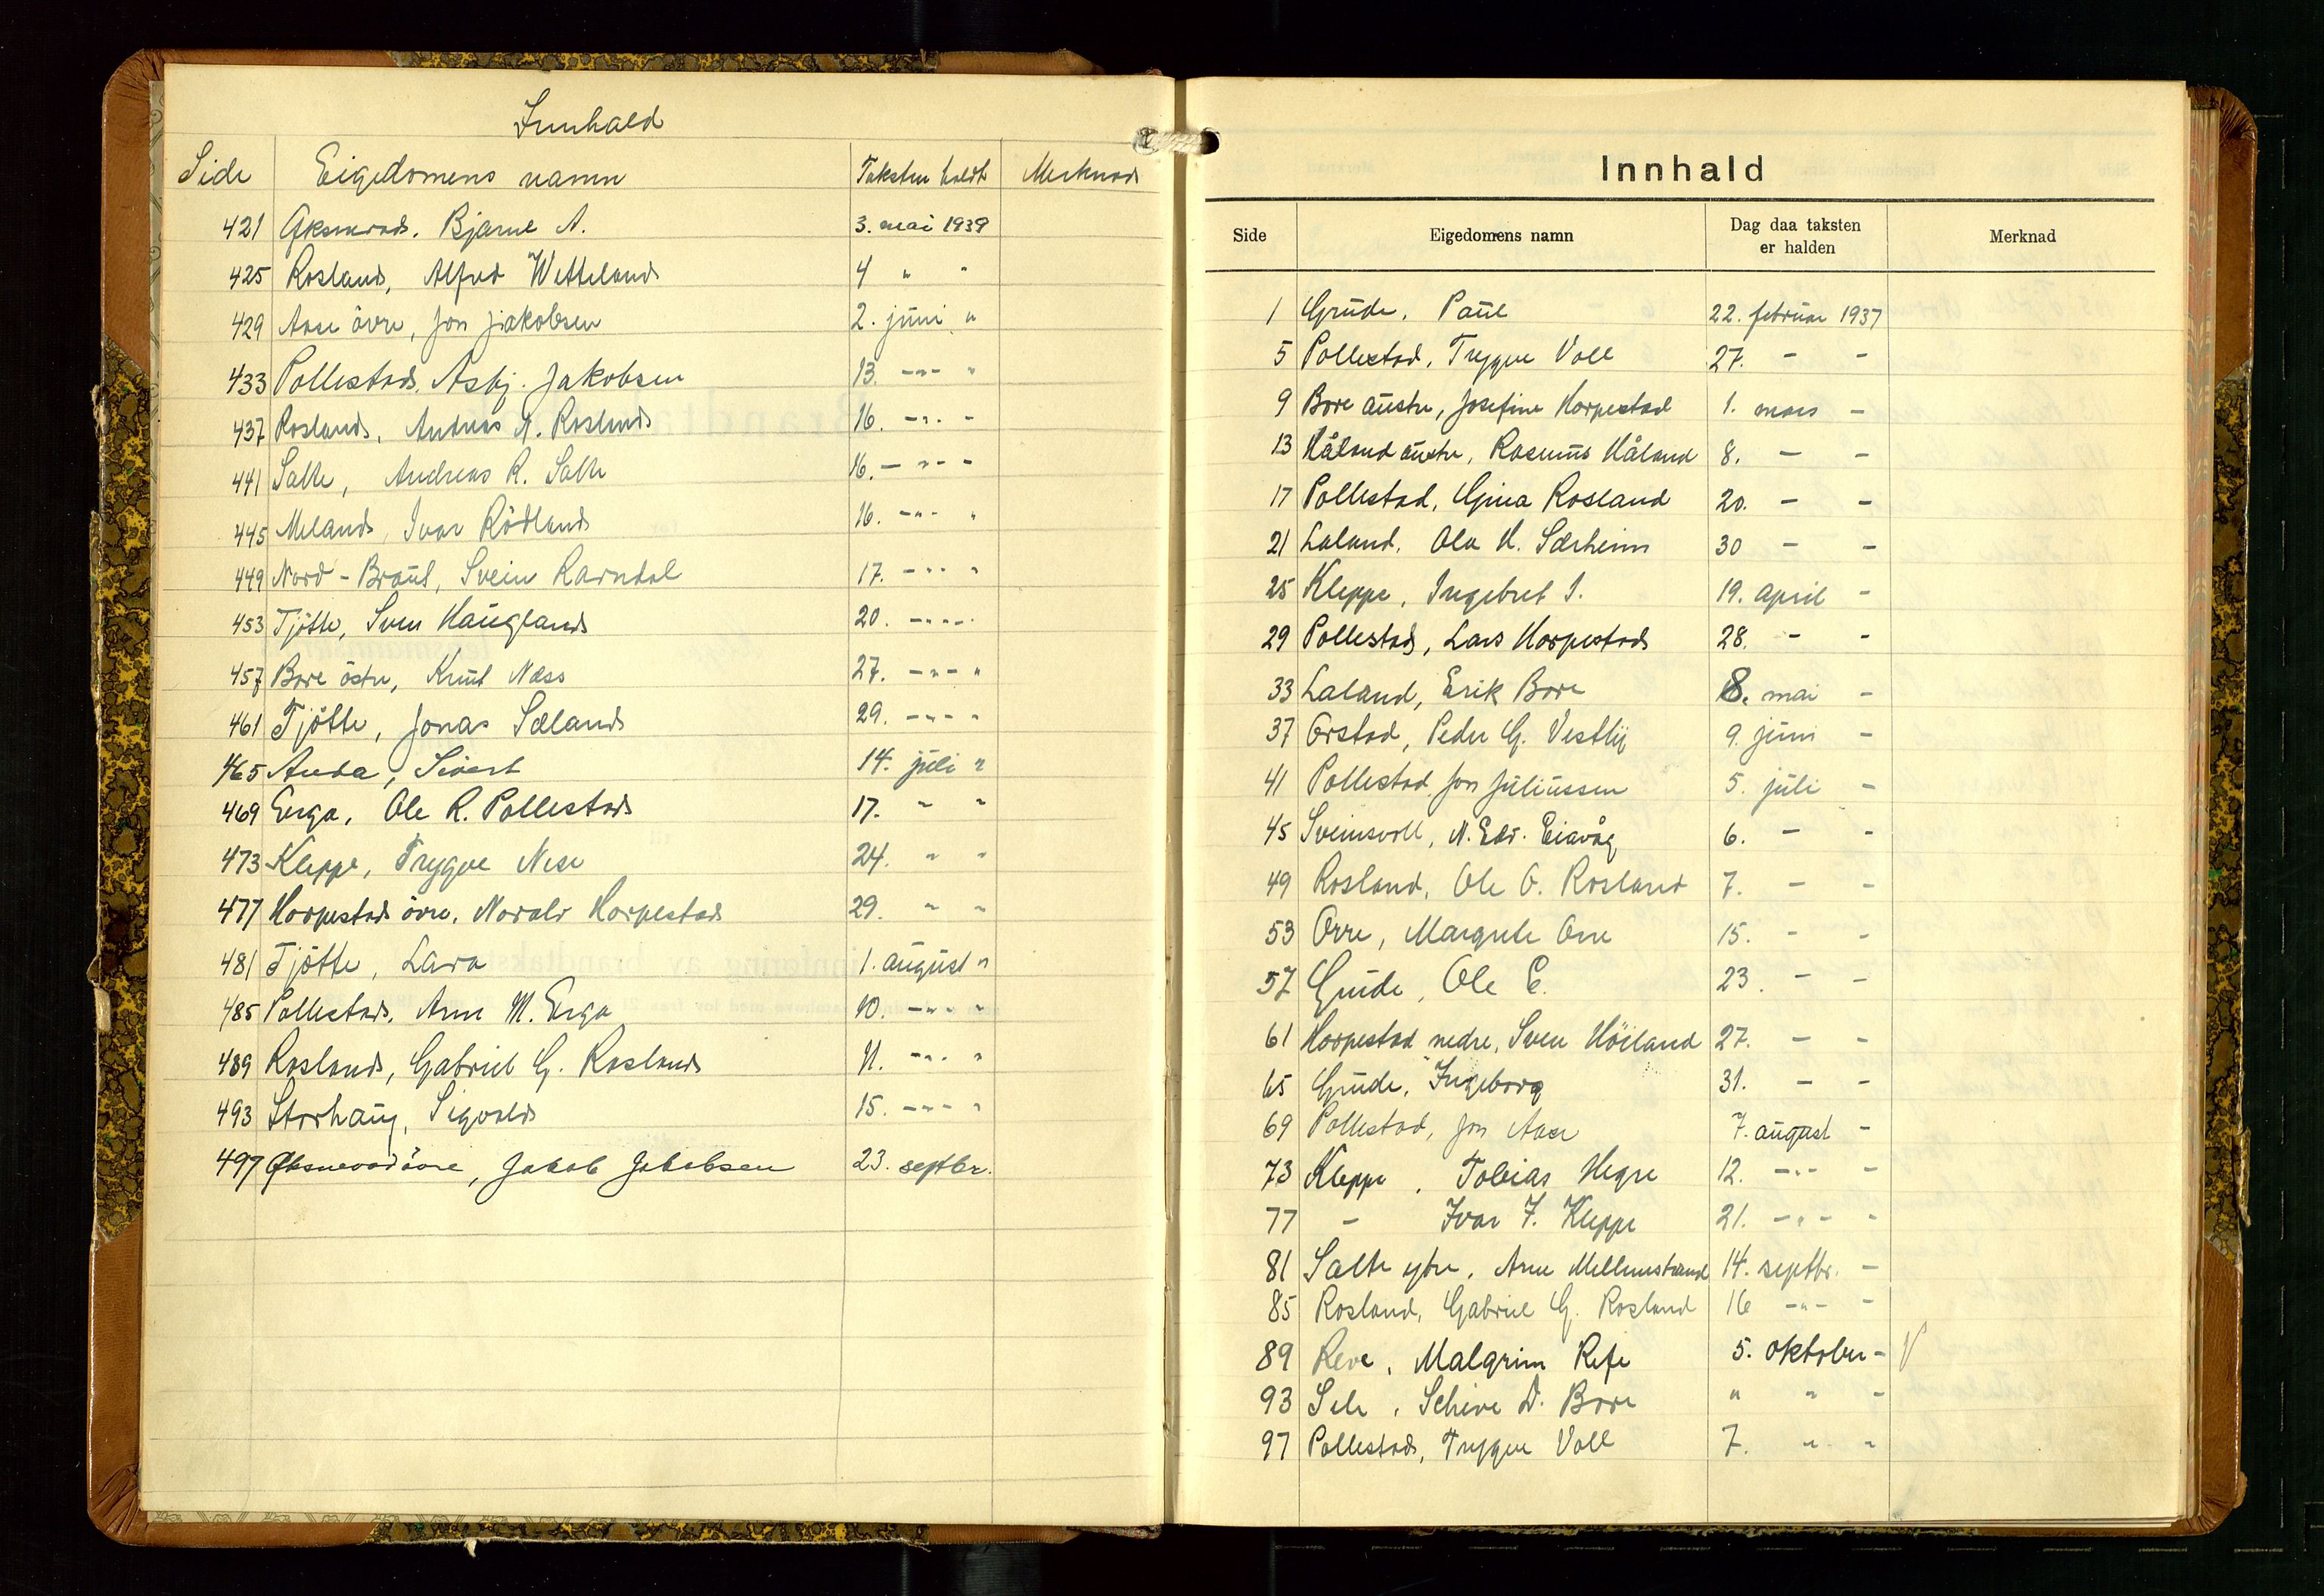 Innhald
Side Eigedomens namn Taksten holdt Merknad
421 Øksnevad, Bjarne A. 3. mai 1939
425 Rosland, Alfred Wetteland 4 " "
429 Aase övre, Jon Jakobsen 2. juni "
433 Pollestad, Asbj. Jakobsen 13. -"- "
437 Rosland, Andreas A. Rosland 16. -"- -
441 Salte, Andreas R. Salte 16. - "- -
445 Meland, Ivar Rödland 16. -"- "
449 Nord-Braut, Svein Ravndal 17. -"- "
453 Tjötte, Sven Haugland 20. -"-"-
457 Bore östre, Knut Næss 27. -"- "
461 Tjötte, Jonas Sæland 29. -"- "
465 Anda, Sivert 14. juli "
469 Erga, Ole R. Pollestad 17. " "
473 Kleppe, Trygve Nese 24. " "
477 Horpestad övre, Norald Horpestad 29. " "
481 Tjötte, Lars 1. august "
485 Pollestad, Arne M. Erga 10. -"- "
489 Rosland, Gabriel G. Rosland 11. -"- "
493 Storhaug, Sigvald 15. -"- "
497 Øksnevad övre, Jakob Jakobsen 23. septbr.
Innhald
Side Eigedomens namn Dag daa taksten er halden Merknad
1 Grude, Paul 22. februar 1937
5 Pollestad, Trygve Voll 27. - -
9 Bore austre, Josefine Horpestad 1. mars -
13 Håland austre, Rasmus Håland 8. - -
17 Pollestad, Gina Rosland 20. - -
21 Laland, Ola H. Særheim 30 - -
25 Kleppe, Ingebret I. 19. april -
29 Pollestad, Lars Horpestad 28. - -
33 Laland, Erik Bore 8. mai -
37 Orstad, Peder G. Vestly 9. juni -
41 Pollestad, Jon Juliussen 5. juli -
45 Sveinsvoll, N. Edv. Eiavåg 6. - -
49 Rosland, Ole O. Rosland 7. - -
53 Orre, Margrete Orre 15. - -
57 Grude, Ole E. 23. - -
61 Horpestad nedre, Sven Höiland 27. - -
65 Grude, Ingeborg 31. - -
69 Pollestad, Jon Aase 7. august -
73 Kleppe, Tobias Hegre 12. -"- -
77 - Ivar F. Kleppe 21. -"- -
81 Salte ytre, Arne Mellemstrand 14. septbr. -
85 Rosland, Gabriel G. Rosland 16 -"- -
89 Reve, Malgrim Refe 5. oktober - V
93 Sele, Scheve D. Bore " " -
97 Pollestad, Trygve Voll 7. " "